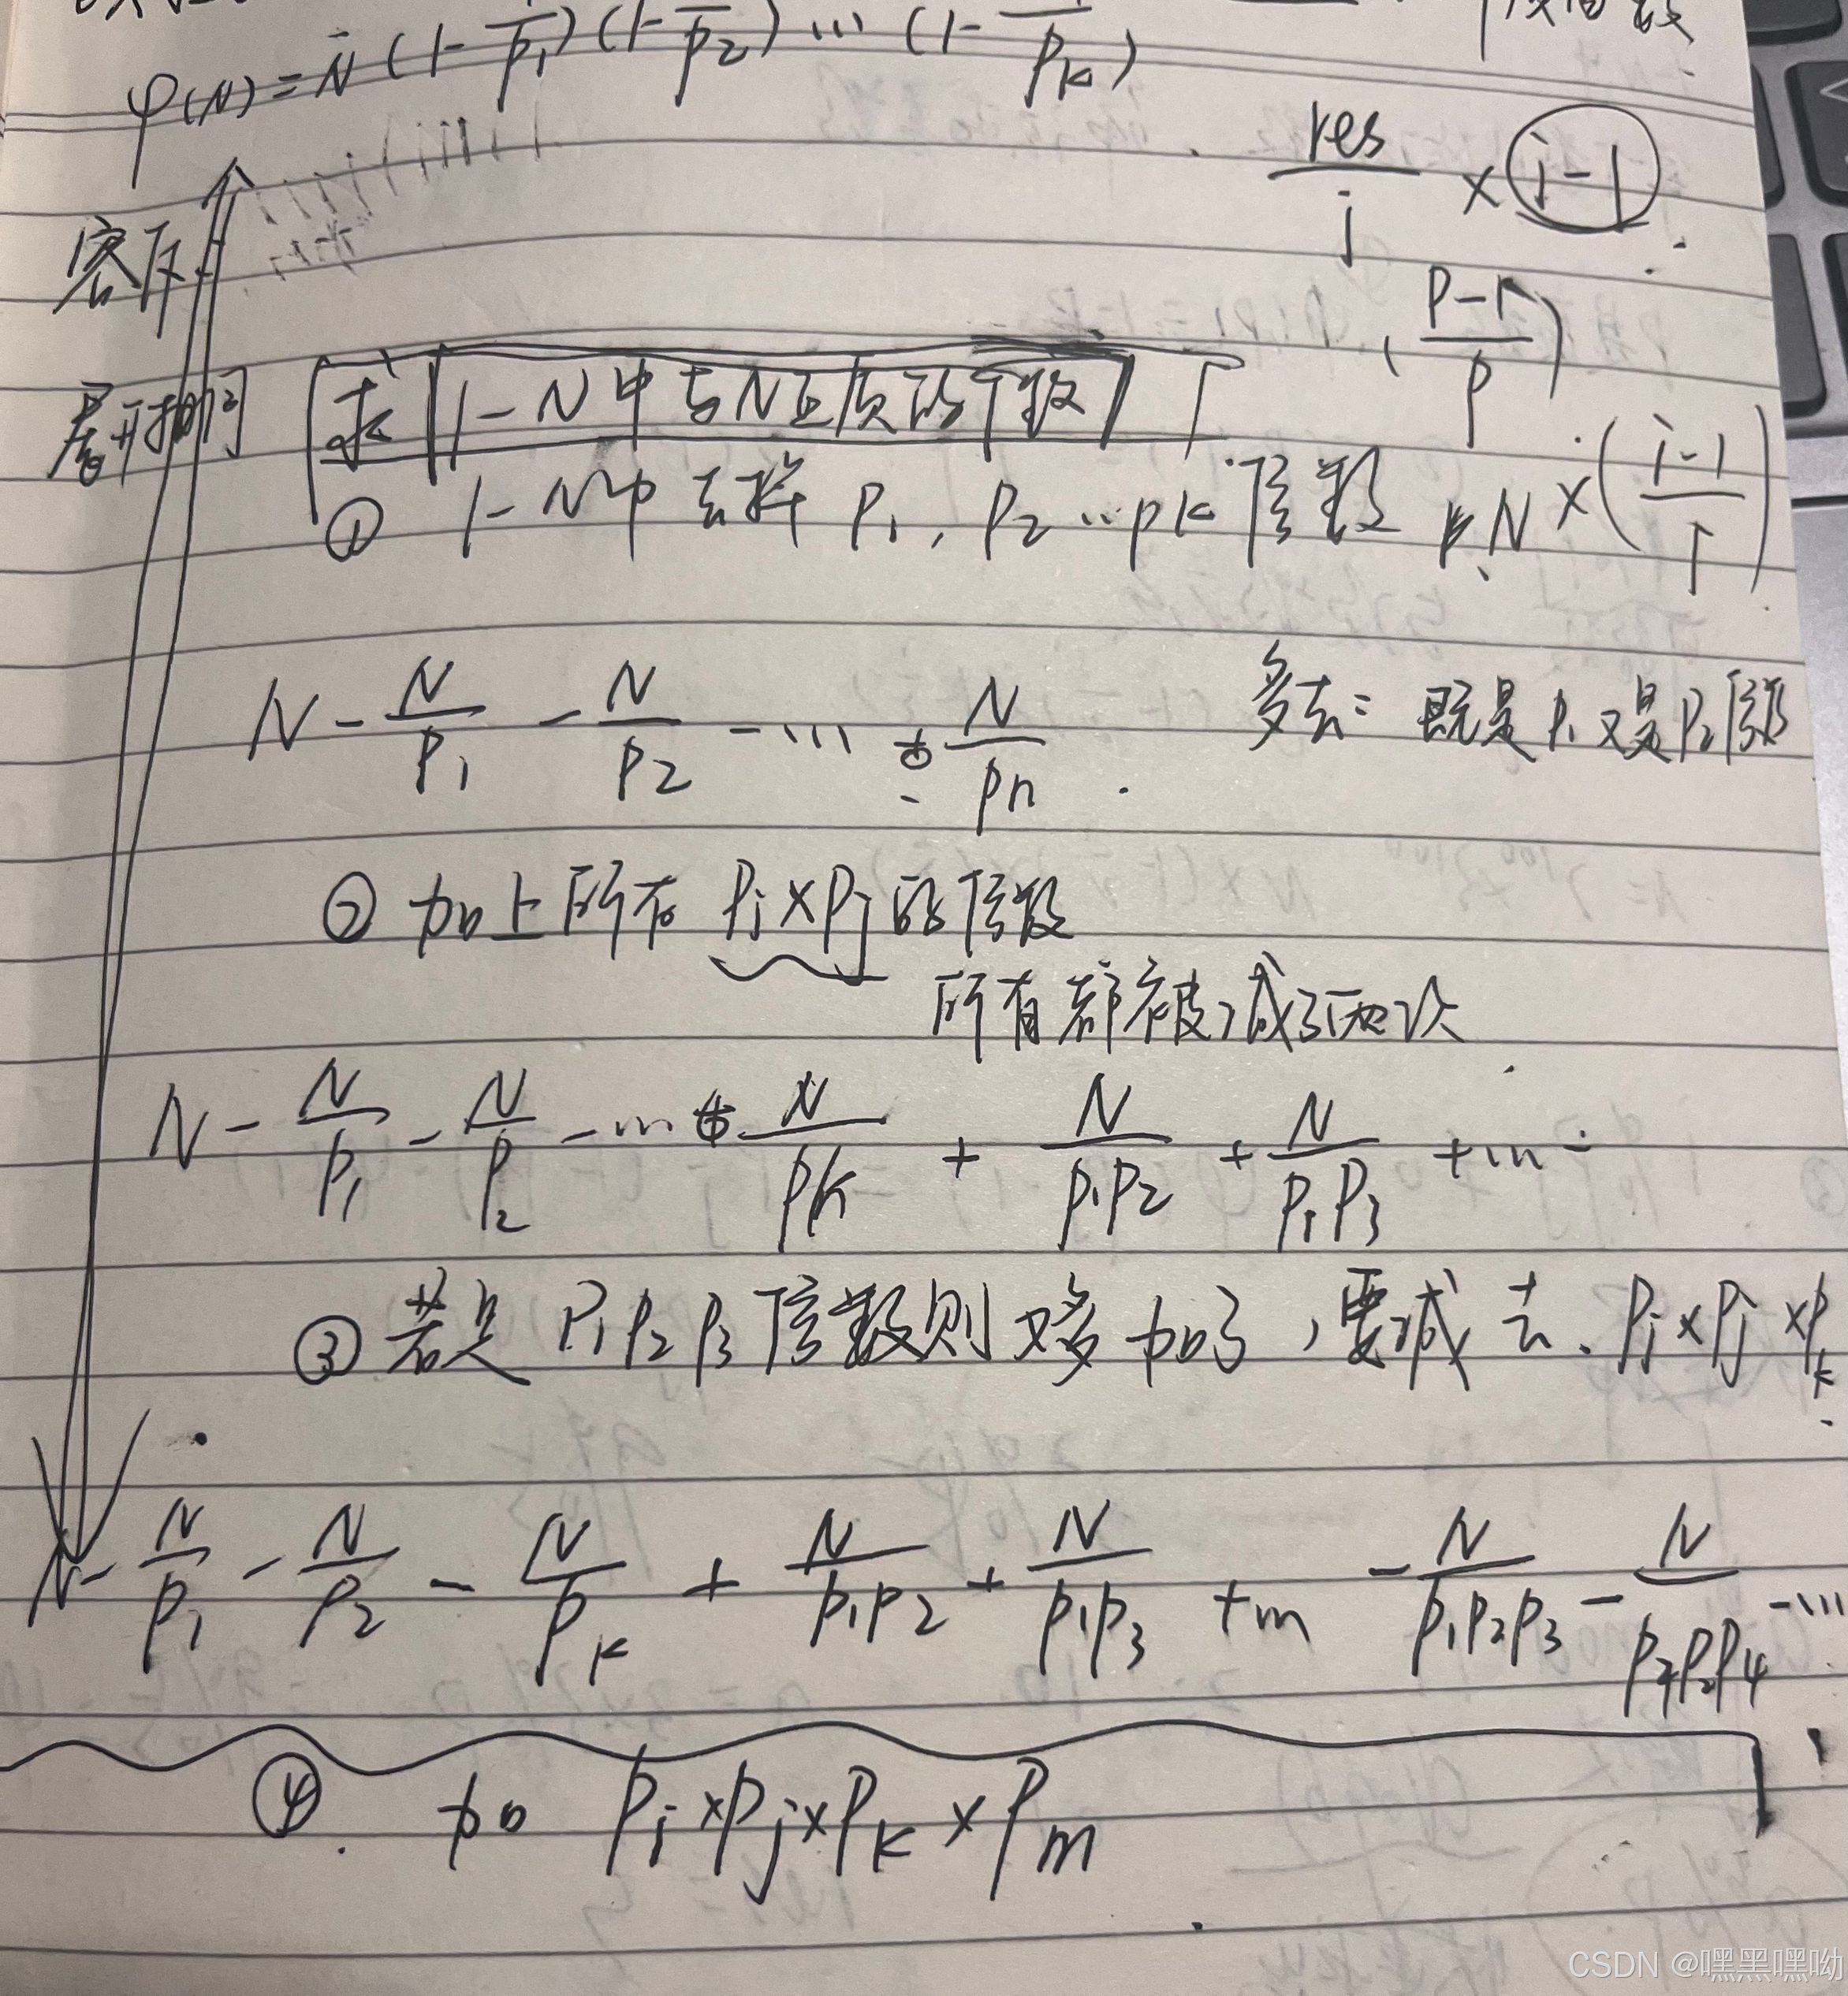 φ(N) = N (1 - 1/p₁) (1 - 1/p₂) … (1 - 1/pₖ)
res/i × i-1
容斥
(p-1/p)
展开相同 求 1-N中与N互质的个数
① 1-N中去掉 p₁, p₂ … pk 倍数 N × (i-1/i)
N - N/p₁ - N/p₂ - … - N/pn 多去: 既是p₁又是p₂倍数
② 加上所有 pᵢ×pⱼ 的倍数
所有都被减了两次
N - N/p₁ - N/p₂ - … - N/pk + N/p₁p₂ + N/p₁p₃ + …
③ 若是 p₁p₂p₃ 倍数则又多加了,要减去 pᵢ×pⱼ×pₖ
N - N/p₁ - N/p₂ - N/pₖ + N/p₁p₂ + N/p₁p₃ + … - N/p₁p₂p₃ - …
④ 加 pᵢ×pⱼ×pₖ×pₘ
CSDN @嘿黑嘿呦